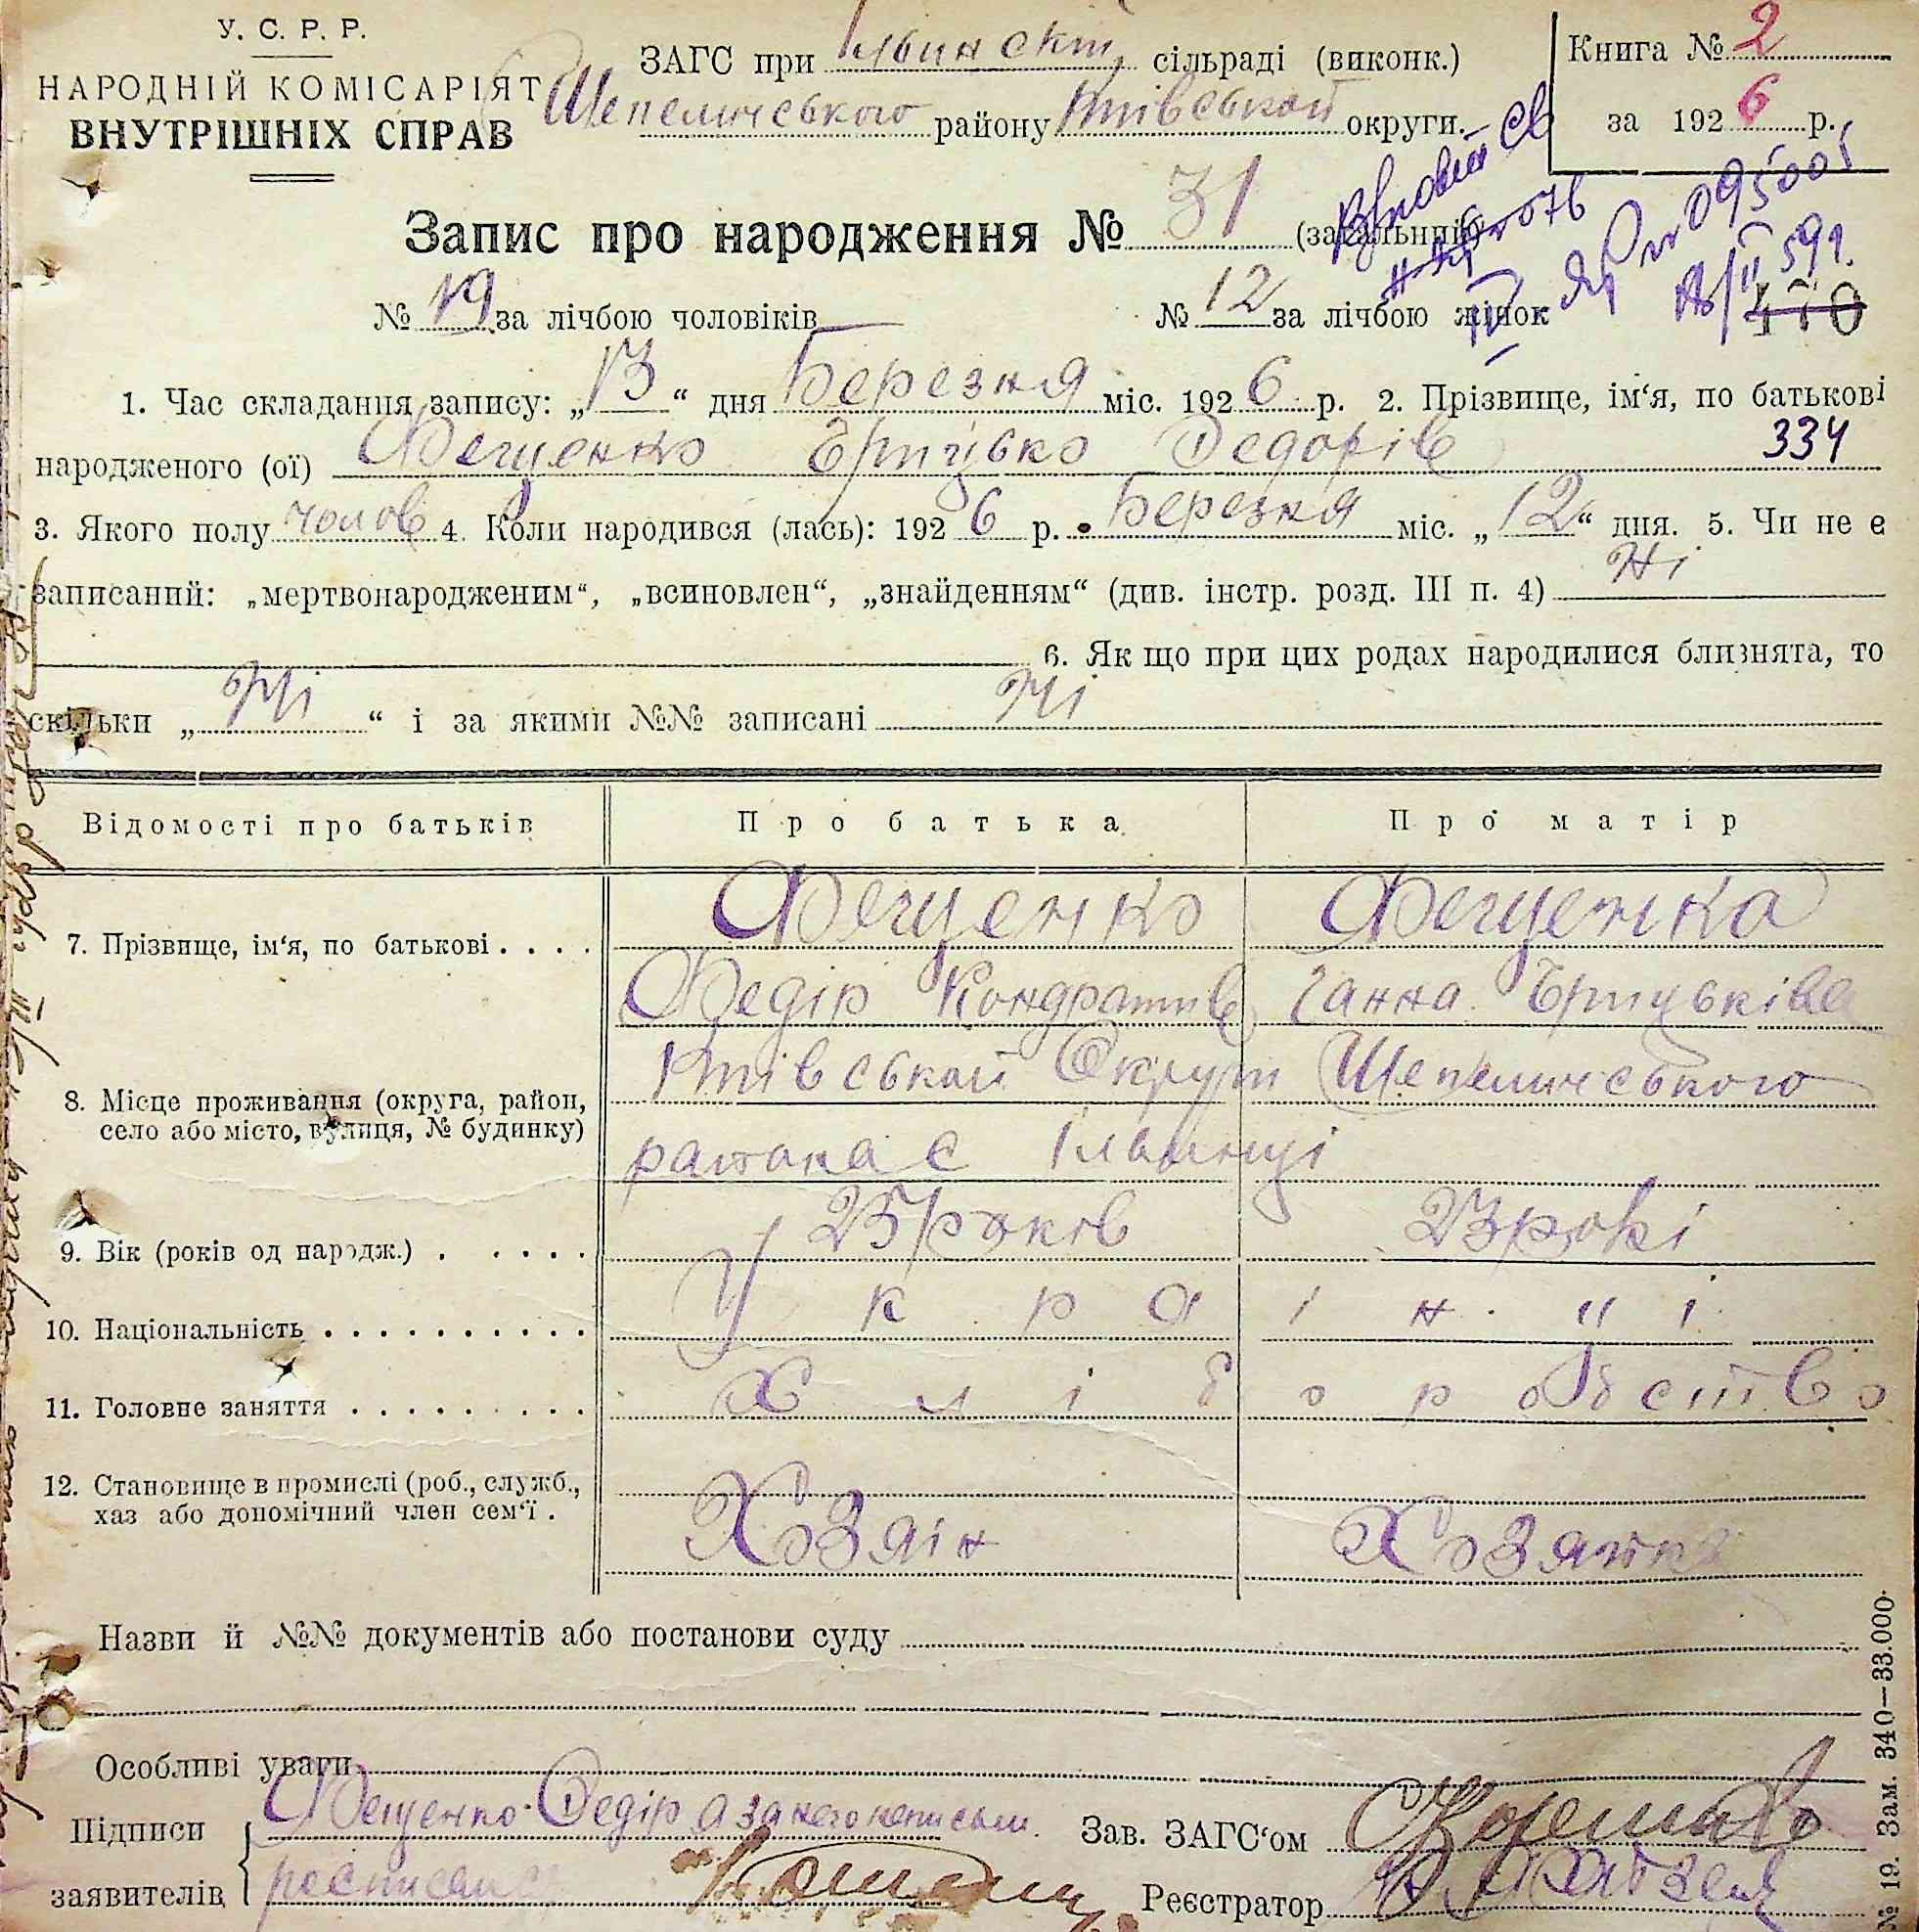 У. С. Р. Р.
НАРОДНІЙ КОМІСАРІЯТ
ВНУТРІШНІХ СПРАВ
ЗАГС при сільраді (виконк.)
Шепеличського району Київськой округи.
Книга № 2
за 1926 р.
Запис про народження № 31 (загальний)
095005
№ 19 за лічбою чоловіків № 12 за лічбою жінок
591.
470
1. Час складання запису: „13“ дня Березня міс. 1926 р. 2. Прізвище, ім‘я, по батькові
народженого (ої) Фещенко Грицько Федорів 334
3. Якого полу чолов 4. Коли народився (лась): 1926 р. Березня міс. „12“ дня. 5. Чи не є
записаний: „мертвонародженим“, „всиновлен“, „знайденням“ (див. інстр. розд. III п. 4) Ні
6. Як що при цих родах народилися близнята, то
скільки „ Ні “ і за якими №№ записані Ні
Відомості про батьків Про батька Про матір
7. Прізвище, ім‘я, по батькові . . . . Фещенко Фещенка
Федір Кондратів Ганна Грицьківа
8. Місце проживання (округа, район,
село або місто, вулиця, № будинку)
Київськой Округи Шепеличського
района с Ільінці
9. Вік (років од народж.) . . . . . 25 років 23 років
10. Національність . . . . . . . . . . . Украін " і
11. Головне заняття . . . . . . . . . Хліборобство
12. Становище в промислі (роб., служб.,
хаз або допомічний член сем‘ї .
Хозяін Хозяйка
Назви й №№ документів або постанови суду
Особливі уваги
Підписи
заявителів
Фещенко Федір а за него неписьм.
росписався
Зав. ЗАГС‘ом
Реєстратор
№ 19. Зам. 340—33.000.